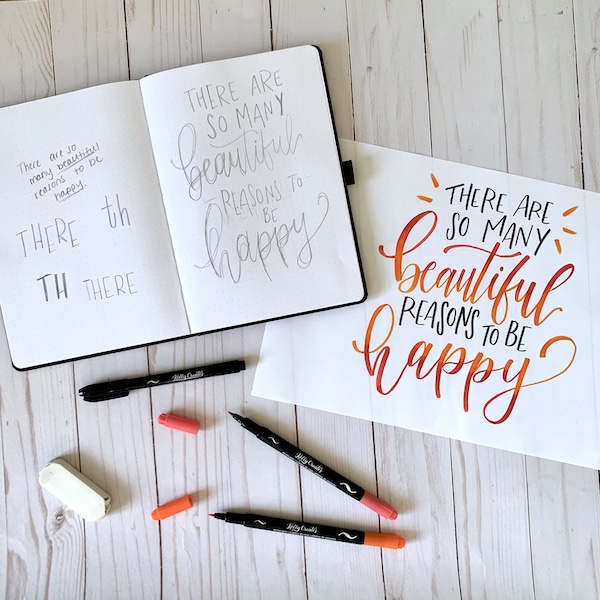 There are so
many beautiful
reasons to be
happy.
THERE th
TH THERE
THERE ARE
SO MANY
beautiful
REASONS TO
BE
happy
THERE ARE
SO MANY
beautiful
REASONS TO BE
happy
Kelly Creates
Kelly Creates
Kelly Creates